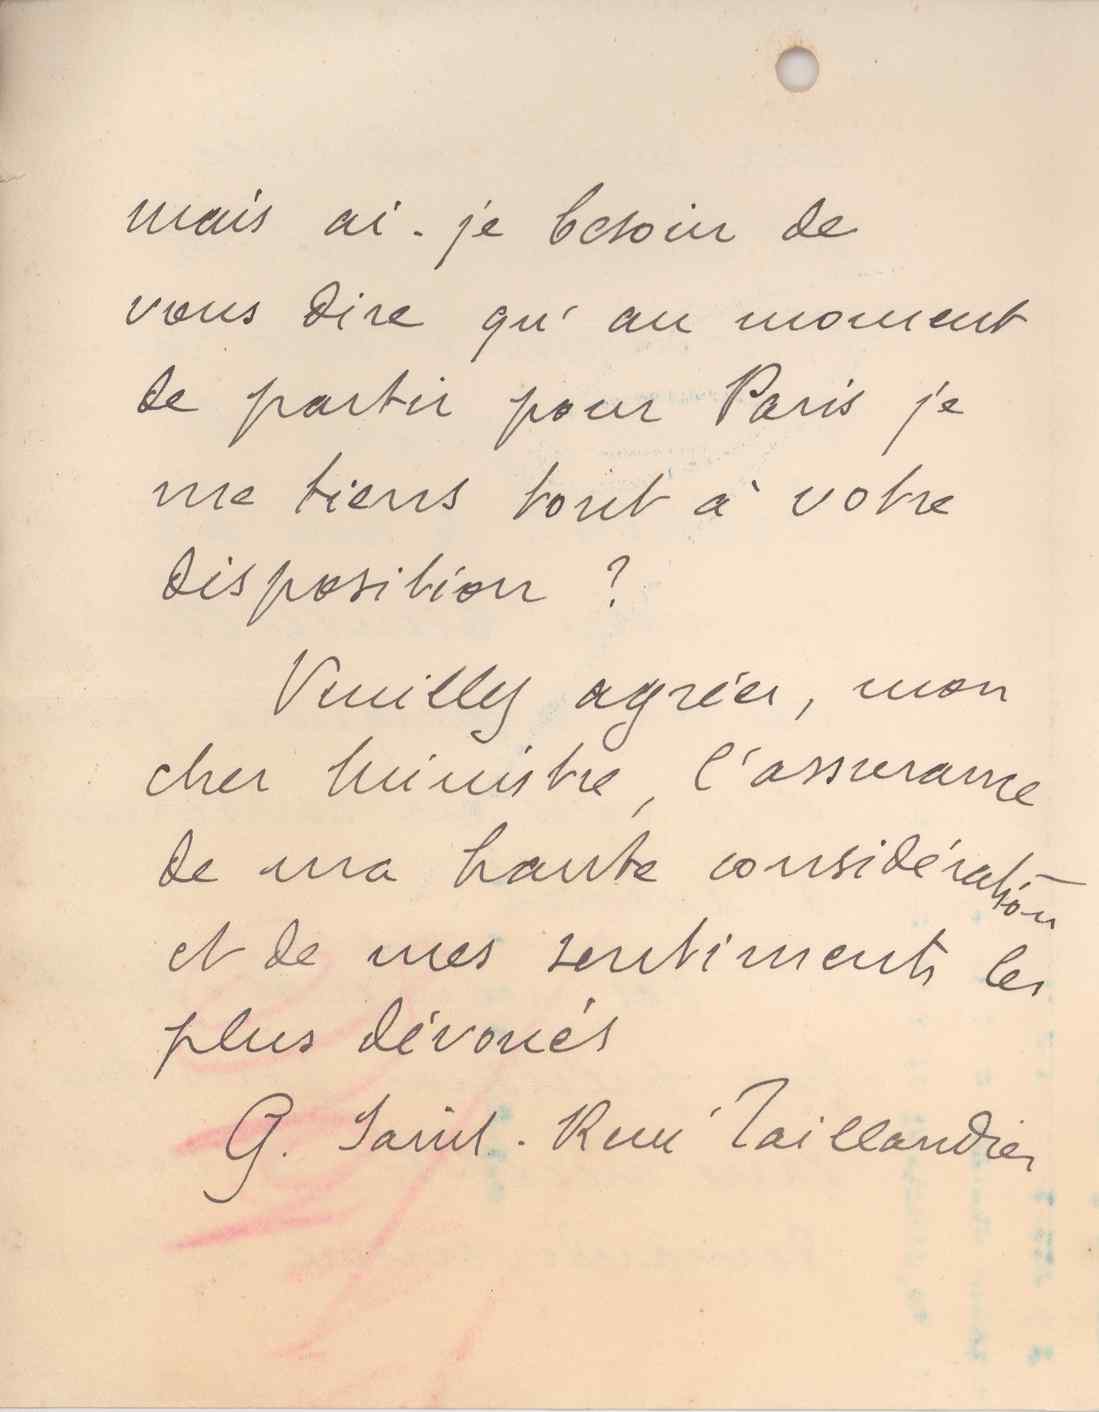 mais ai-je besoin de
vous dire qu'au moment
de partir pour Paris je
me tiens tout à votre
disposition ?
Veuillez agréer, mon
cher Ministre, l'assurance
de ma haute considération
et de mes sentiments les
plus dévoués
G. Saint-René Taillandier